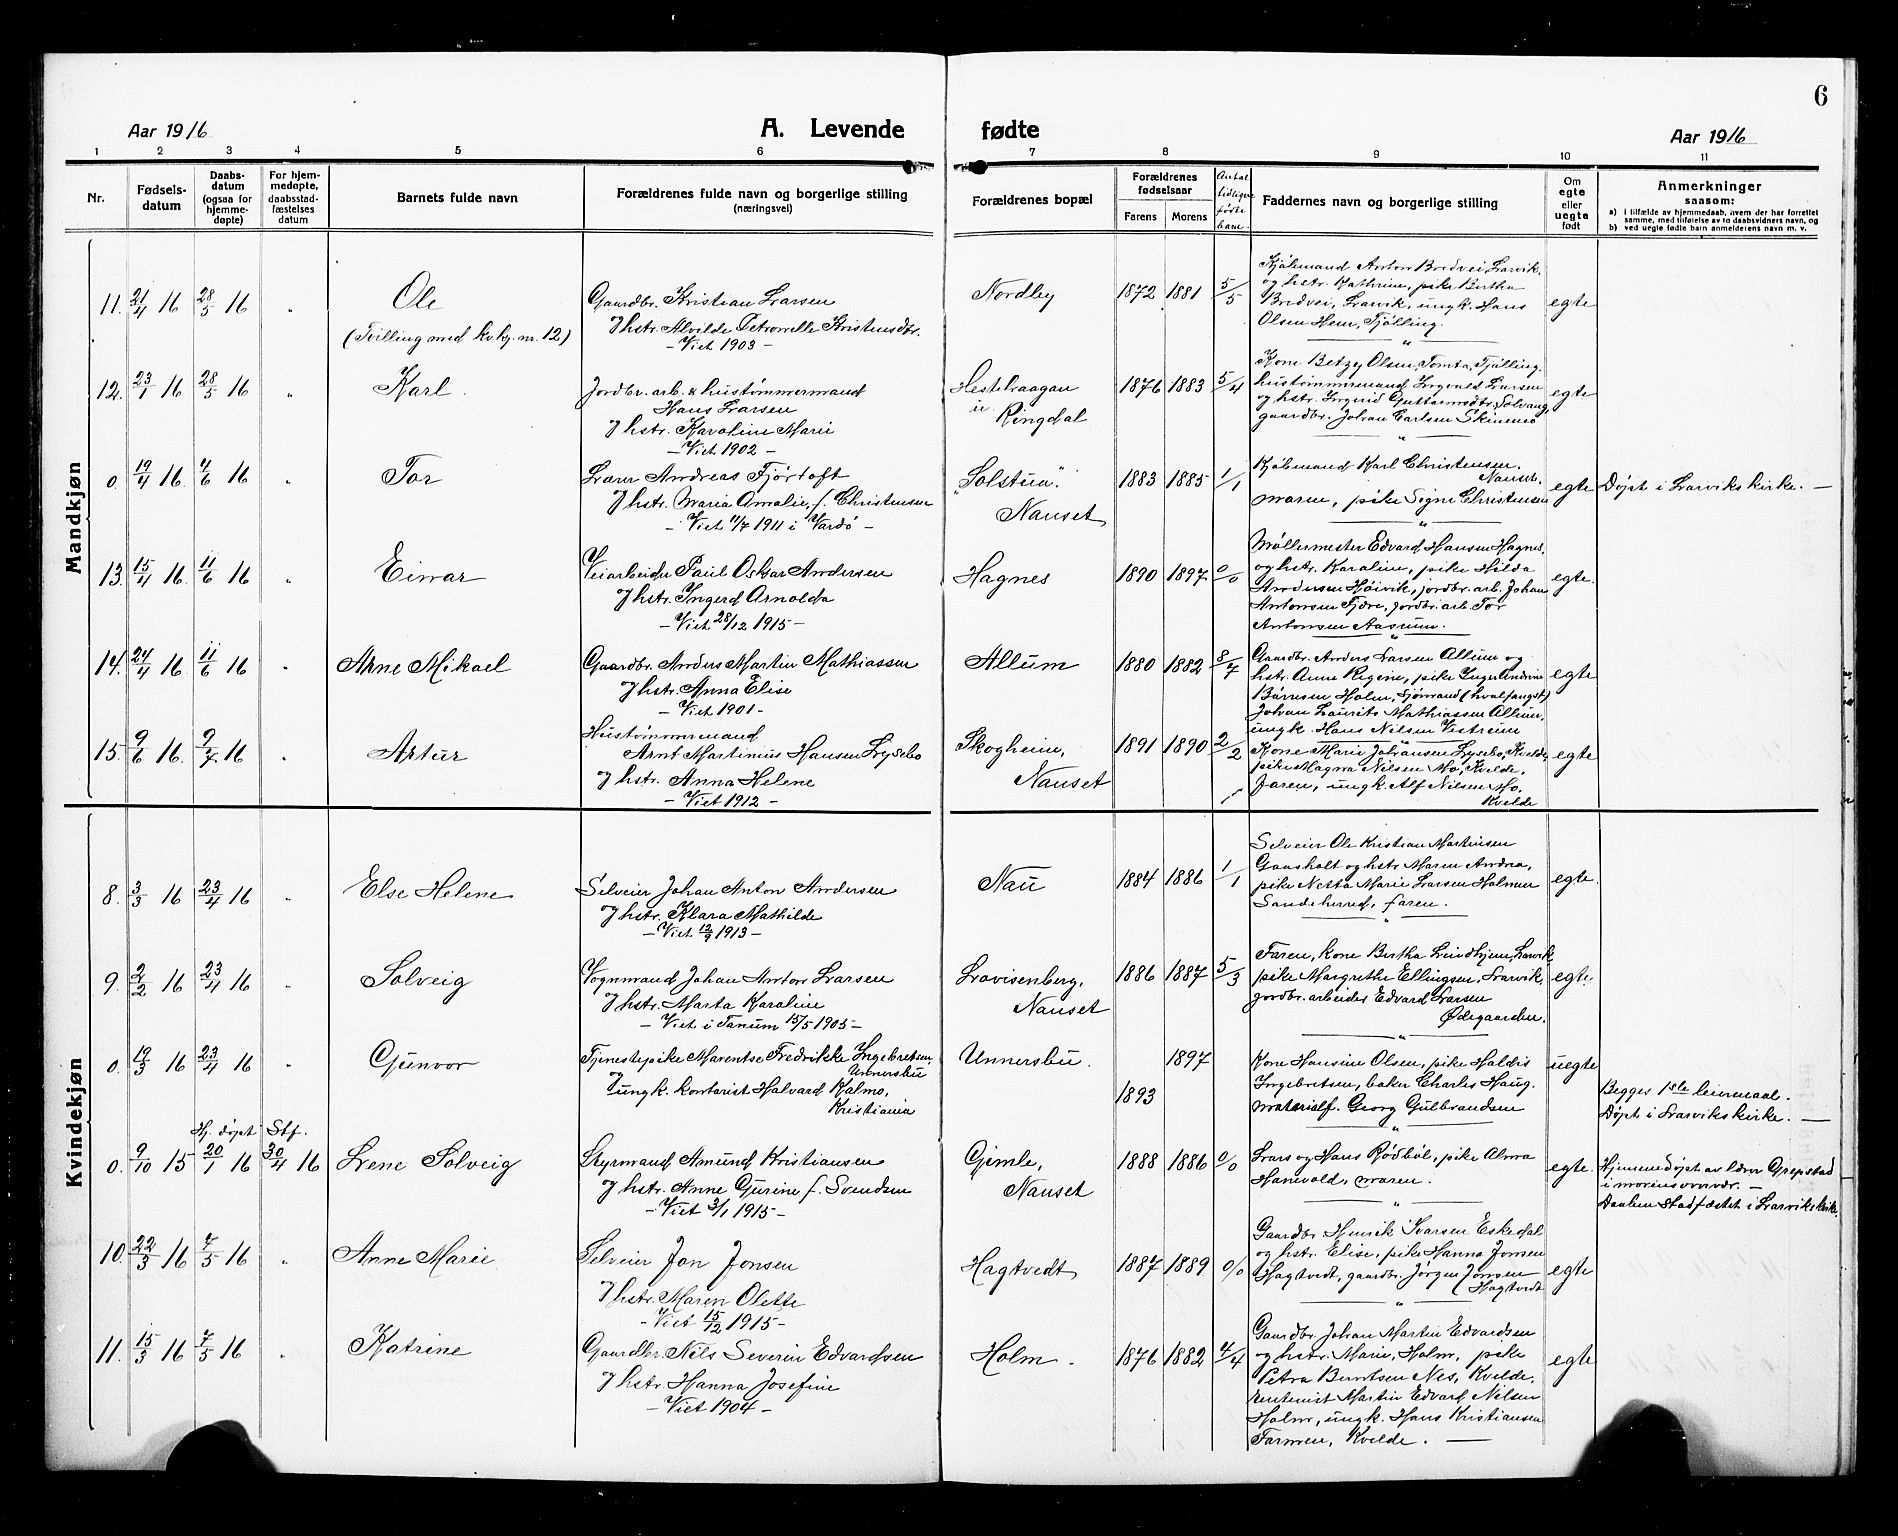 6
Aar 1916
A. Levende fødte
Aar 1916
1 2 3 4 5 6 7 8 9 10 11
Nr.
Fødsels-
datum
Daabs-
datum
(ogsaa for
hjemme-
døpte)
For hjem-
medøpte,
daabsstad-
fæstelses
datum
Barnets fulde navn
Forældrenes fulde navn og borgerlige stilling
(næringsvei)
Forældrenes bopæl
Forældrenes
fødselsaar
Farens Morens
Antal
tidligere
fødte
barn.
Faddernes navn og borgerlige stilling
Om
egte
eller
uegte
født
Anmerkninger
saasom:
a) i tilfælde av hjemmedaab, hvem der har forrettet
samme, med tilføielse av to daabsvidners navn, og
b) ved uegte fødte barn anmelderens navn m. v.
Mandkjøn
11. 21/4 16 28/5 16 "
Ole
(Tvilling med kv.kj. nr. 12)
Gaardbr. Kristian Larsen
og hstr. Alvilde Petronelle Kristensdtr.
- Viet 1903 -
Nordby
1872 1881 5/5
Kjøbmand Anton Bredvei Larvik,
og hstr. Kathrine, pike Bertha
Bredvei, Larvik, ungk. Hans
Olsen Hem, Tjølling.
egte
12. 23/1 16 28/5 16 "
Karl.
Jordbr. arb. & hustømmermand
Hans Larsen
og hstr. Karoline Marie
- Viet 1902 -
Hestehaagan
u.
Ringdal
1876 1883 5/4
Kone Betzy Olsen, Tomta, Tjølling,
hustømmermand Ingvald Larsen
og hstr. Ingrid Guttormsdtr. Solvang,
gaardbr. Johan Carlsen Skinmo
egte
0. 19/4 16 4/6 16 "
Tor
Lærer Andreas Fjørtoft
og hstr. Maria Amalie, f. Christensen
- Viet 11/7 1911 i Vardø -
"Solstua."
Nanset
1883 1885 1/1
Kjøbmand Karl Christensen,
Nanset,
moren, pike Signe Christensen
egte
Døpt i Larviks kirke. —
13. 15/4 16 11/6 16 "
Einar
Veiarbeider Paul Oskar Andersen
og hstr. Ingerd Arnolda
- Viet 28/12 1915 -
Hagnes
1890 1897 0/0
Møllermester Edvard Hansen Hagnes,
og hstr. Karoline, pike Hilda
Andersen Høivik, jordbr. arb. Johan
Antonsen Fjære, jordbr. arb. Tor
Antonsen Aasrum.
egte.
14. 24/4 16 11/6 16 "
Arne Mikael
Gaardbr. Anders Martin Mathiassen
og hstr. Anna Elise
- Viet 1901 -
Allum
1880 1882 8/7
Gaardbr. Anders Larsen Allum og
hstr. Anne Regine, pike Inger Andrine
Børresen Holm, sjømand (hvalfangst)
Johan Laurits Mathiassen Allum,
ungk. Hans Nilsen Vestrem
egte
15. 9/6 16. 9/7 16 "
Artur
Hustømmermand
Arnt Martinius Hansen Lysebo
og hstr. Anna Helene
- Viet 1912 -
Skogheim,
Nanset
1891 1890 2/2
Kone Marie Johansen Lysebo, Kvelde,
pike Magna Nilsen Mo, Kvelde,
Faren, ungk. Alf Nilsen Mo,
Kvelde
egte
Kvindekjøn
8. 3/3 16 23/4 16 "
Else Helene
Selveier Johan Anton Andersen
og hstr. Klara Mathilde
- Viet 12/9 1913 -
Nau
1884 1886 1/1
Selveier Ole Kristian Martinsen
Gaasholt og hstr Maren Andrea,
pike Netta Marie Larsen Holmen
Sandeherred, faren.
egte.
9. 2/2 16 23/4 16 "
Solveig
Vognmand Johan Anton Larsen
og hstr. Marta Karoline
- Viet i Tanum 15/5 1905 -
Lovisenberg,
Nanset
1886 1887 5/3
Faren, kone Bertha Lindhjem, Larvik,
pike Margrethe Ellingsen, Larvik,
jordbr. arbeider Edvard Larsen
Ødegaarden.
egte
0. 19/3 16 23/4 16 "
Gunvor
Tjenestepike Marentse Fredrikke Ingebretsen,
Unnersbu
og
ungk. kontorist Halvard Kalmo,
Kristiania
Unnersbu.
1897
1893
Kone Hansine Olsen, pike Haldis
Ingebretsen, baker Charles Haug,
materialf. Georg Gulbrandsen
uegte
Begges 1ste leiermaal.
Døpt i Larviks kirke. —
Hj. døpt Stf.
0. 9/10 15 20/1 16 30/4 16
Lrene Solveig
Styrmand Amund Kristiansen
og hstr. Anne Gurine f. Svendsen
- Viet 3/1 1915 -
Gimle,
Nanset
1888 1886 0/0
Lars og Hans Rødbøl, pike Alma
Hanevold, moren.
egte.
Hjemmedøpt av lærer Grepstad
i morens nærvær. —
Daaben stadfæstet i Larviks kirke.
10. 22/3 16 7/5 16 "
Anne Marie
Selveier Jon Jonsen
og hstr. Maren Olette
- Viet 15/12 1915 -
Hagtvedt
1887 1889 0/0
Gaardbr. Henrik Ivarsen Eskedal
og hstr. Elise, pike Hanna Jonsen
Hagtvedt, gaardbr. Jørgen Jonsen
Hagtvedt
egte
11. 15/3 16 7/5 16 "
Katrine
Gaardbr. Nils Severin Edvardsen
og hstr. Hanna Josefine
- Viet 1904 -
Holm.
1876 1882 4/4
Gaardbr. Johan Martin Edvardsen
og hstr. Marie, Holm, pike
Petra Berntsen Nes, Kvelde,
rentenist Martin Edvard Nilsen
Holm, ungk. Hans Kristiansen
Farmen, Kvelde. —
egte